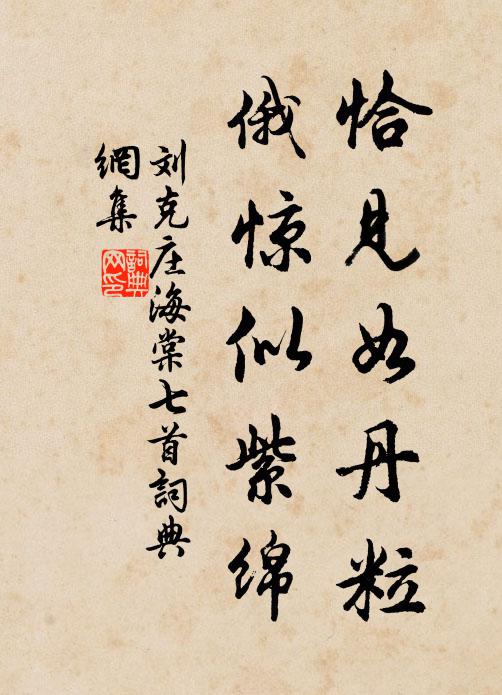 恰见如丹粒
俄惊似紫绵
刘克庄海棠七首詞典
網集
詞典
网印